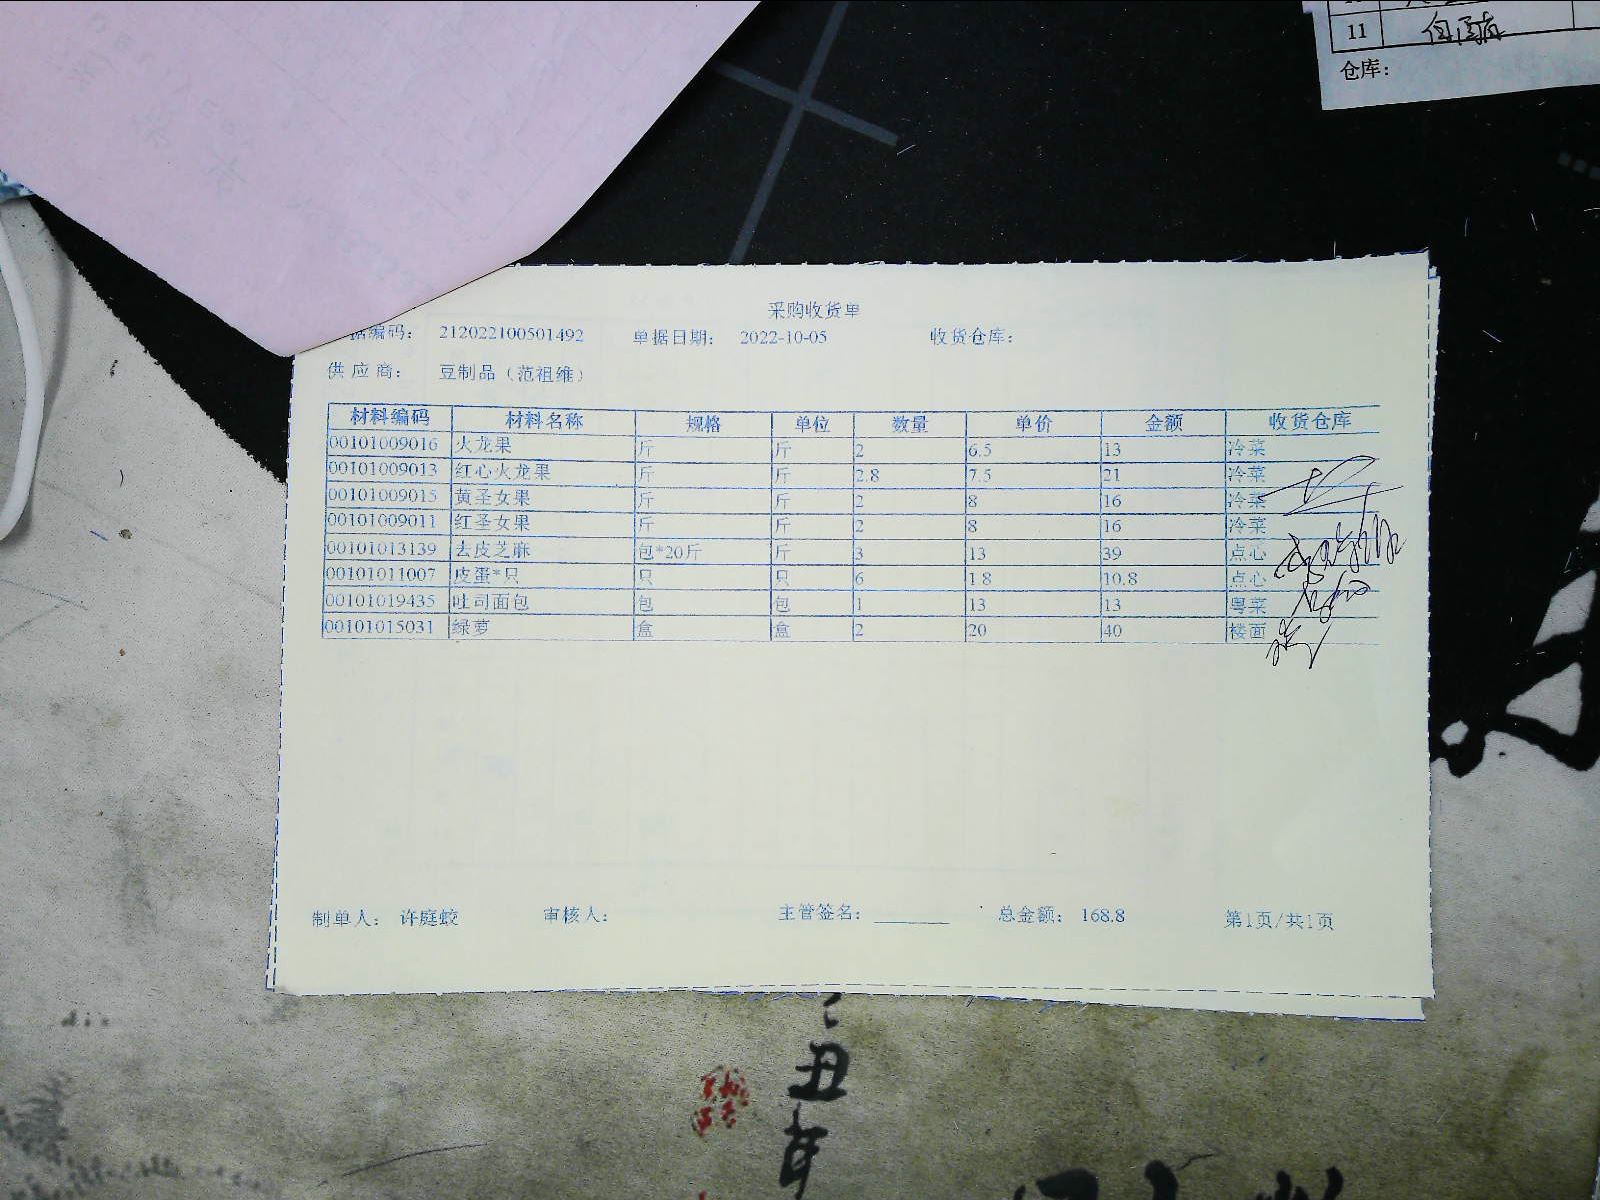 11
仓库：
采购收货单
据编码： 212022100501492 单据日期： 2022-10-05 收货仓库：
供应商： 豆制品（范祖维）
材料编码 材料名称 规格 单位 数量 单价 金额 收货仓库
00101009016 火龙果 斤 斤 2 6.5 13 冷菜
00101009013 红心火龙果 斤 斤 2.8 7.5 21 冷菜
00101009015 黄圣女果 斤 斤 2 8 16 冷菜
00101009011 红圣女果 斤 斤 2 8 16 冷菜
00101013139 去皮芝麻 包*20斤 斤 3 13 39 点心
00101011007 皮蛋*只 只 只 6 1.8 10.8 点心
00101019435 吐司面包 包 包 1 13 13 粤菜
00101015031 绿萝 盒 盒 2 20 40 楼面
制单人： 许庭蛟 审核人： 主管签名： 总金额： 168.8 第1页/共1页
丑
年